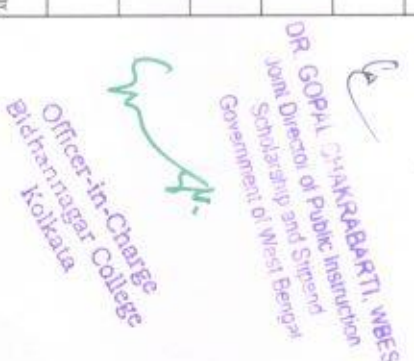 DR. GOPAL CHAKRABARTI, WBES
Joint Director of Public Instruction
Scholarship and Stipend
Government of West Bengal
Officer-in-Charge
Bidhannagar College
Kolkata